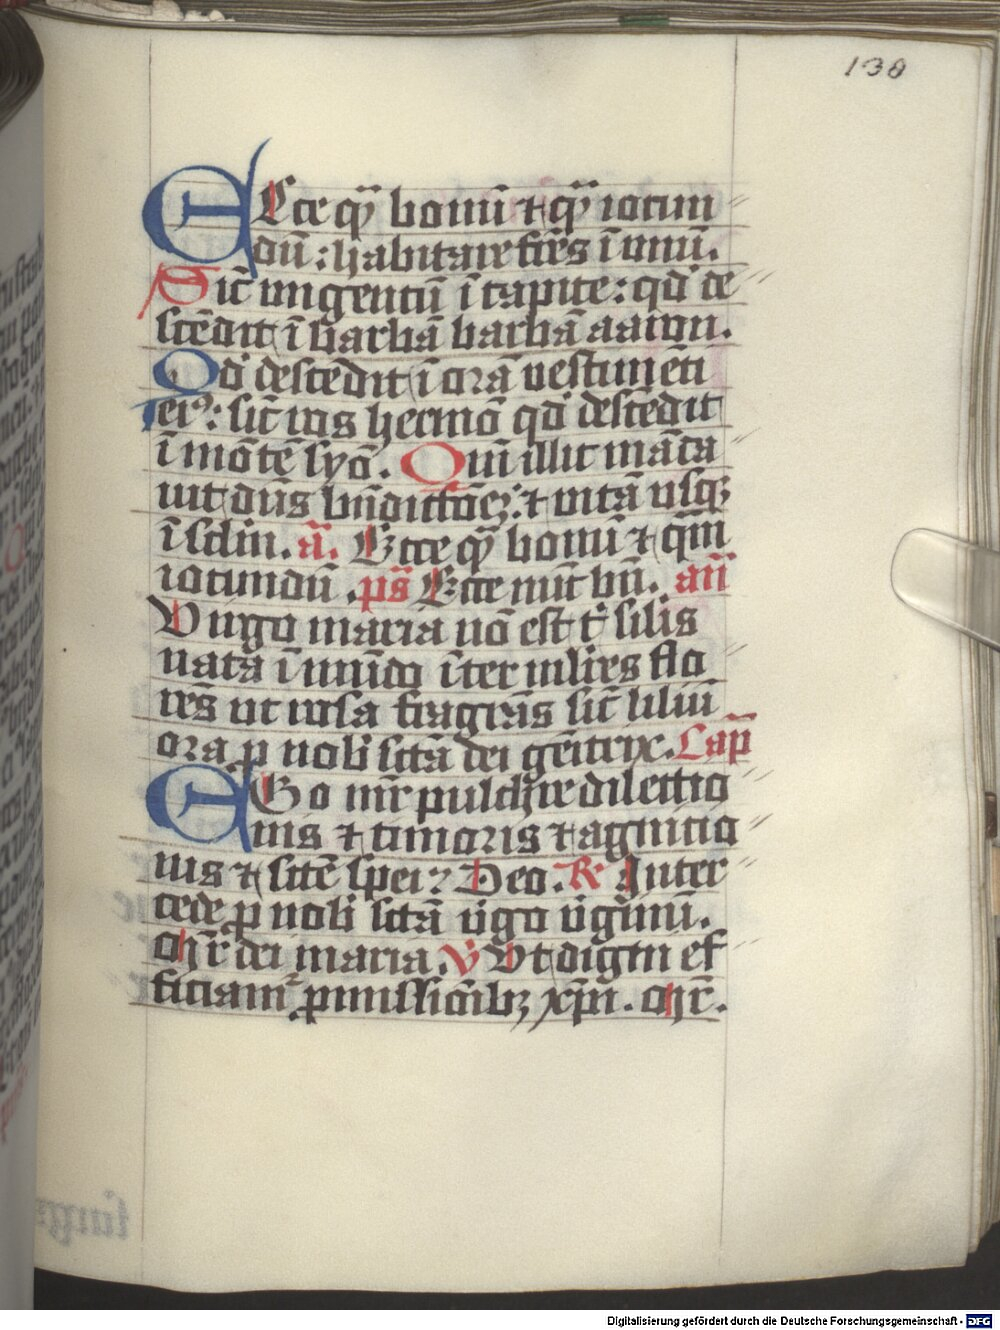 138
ECce qͫ bonū ⁊ qͫ iocun
dū : habitare frēs ī unū .
Sic̄ ungentū ī capite : qd̓ de
scēdit ī barbā barbā aaron .
Qd̓ descēdit ī orā vestimēti
eiꝰ : sic̄ ros hermō qd̓ descēdit
ī mōtē syō . Qm̄ illic mādа
uit dn̄s bn̄dictōeꝫ : ⁊ vitā usqꝫ
ī sclm̄ . a᷈ . Ecce qͫ bonū ⁊ qm̄
iocundū . ps̄ Ecce nūc bn̄ . an̄
Virgo maria nō est t̓ silis
nata ī mūdo īter mlīres flo
res ut rosa fragrās sic̄ liliū
ora ꝓ nob̓ sctā dei gēitrix . Cap̄
EGo mr̄ pulchre dilectio
nis ⁊ timoris ⁊ agnitio
nis ⁊ sctē spei ⁊ Deo . R̸ Inter
cede ꝓ nob̓ sctā v̓go v̓ginū .
Chr̄ dei maria . V̸ Vt digni ef
ficiamr̉ ꝓmissiōibꝫ xp̄i . Chr̄ .
surge
Digitalisierung gefördert durch die Deutsche Forschungsgemeinschaft - DFG